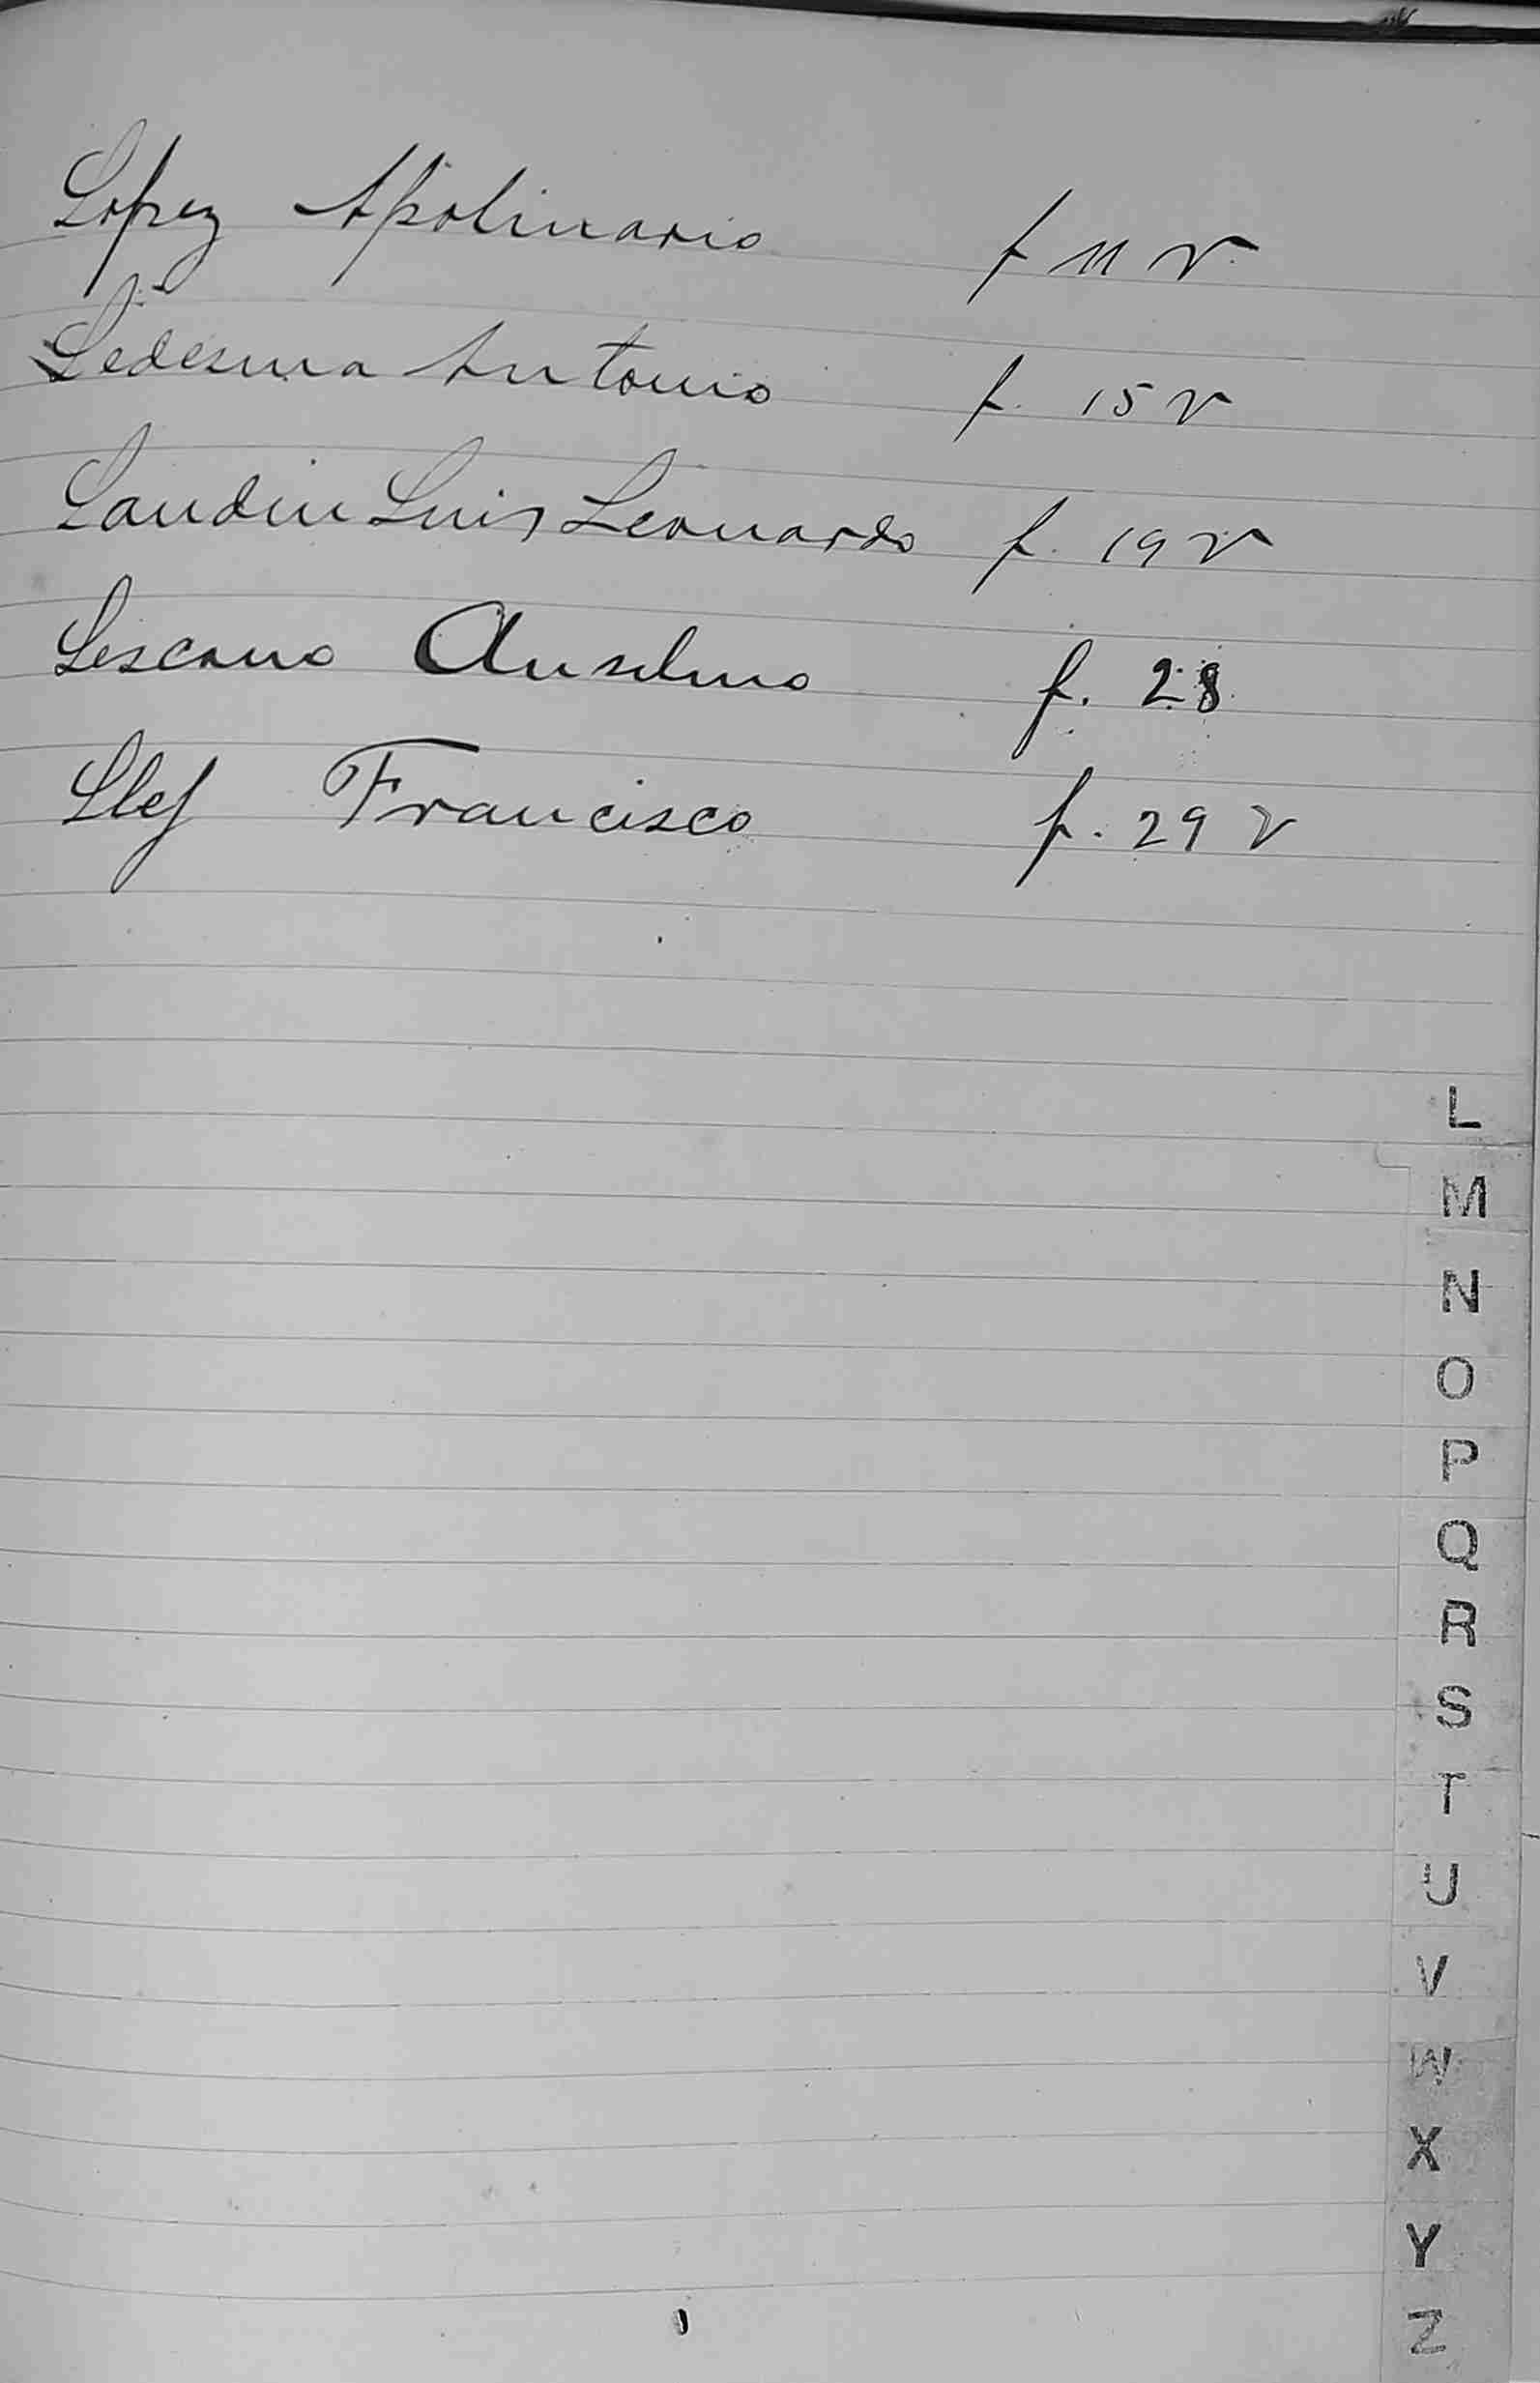 Lopez Apolinario f 11 v.
Ledesma Antonio f. 15 v
Landin Luis Leonardo f. 19 v
Lescano Anselmo f. 28
Llef Francisco f. 29 v
L
M
N
O
P
Q
R
S
T
U
V
W
X
Y
Z